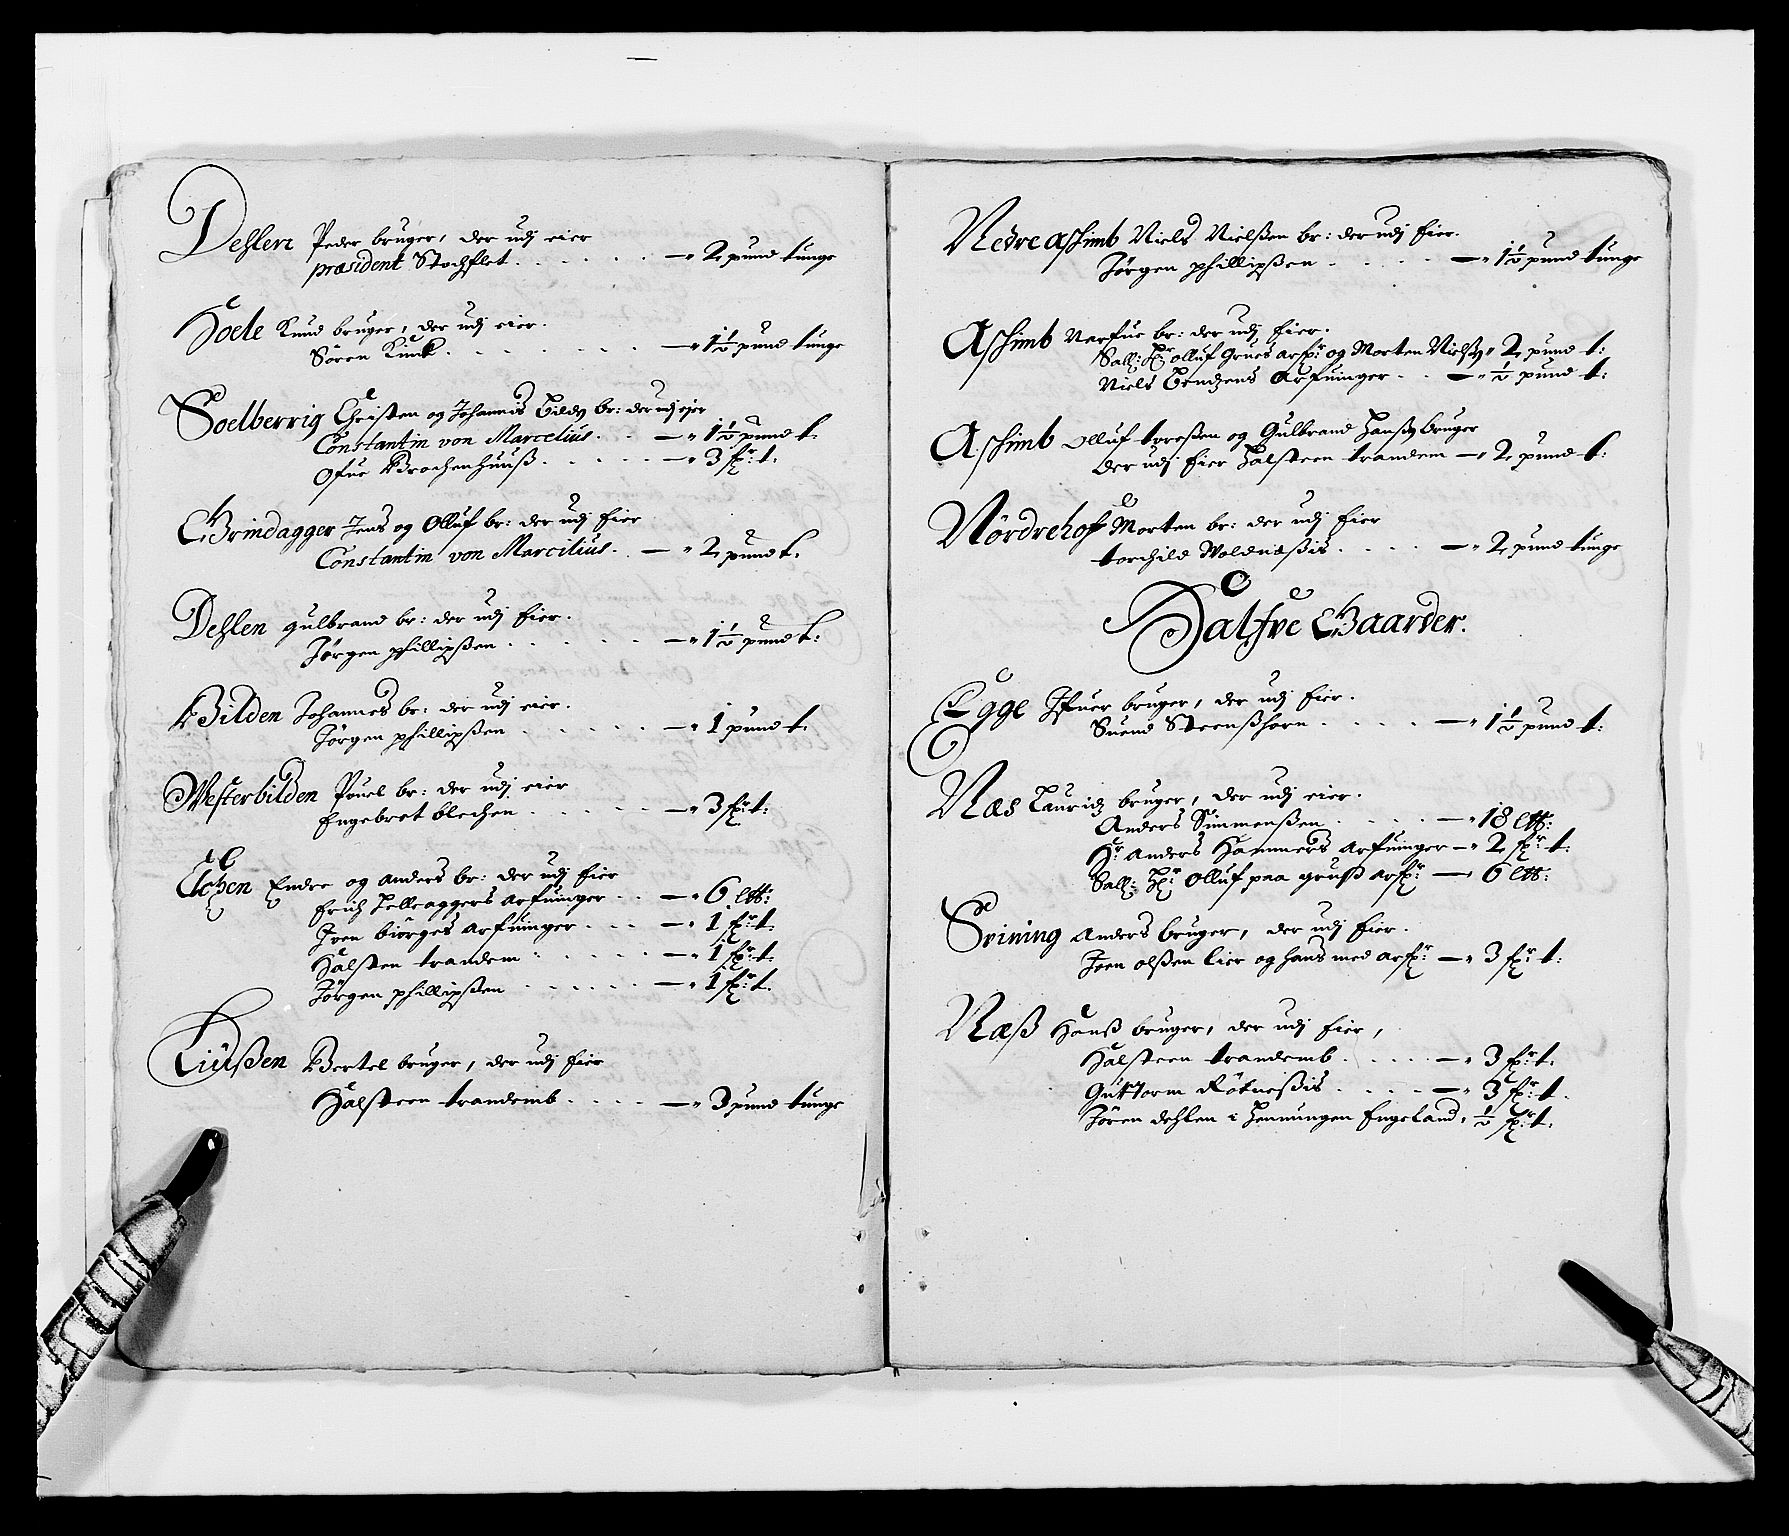 Dehlen Peder bruger, der udj eier
præsident Stochflet . . . . . . — 2 pund tunge
Hoele Knud bruger, der udj eier.
Søren Kinck . . . . . . . — 1½ pund tunge
Soelberrig Christen og Johannis Bildz br: der udj ejer
Constantin von Marcelius . . . — 1½ pund t.
Ofue Brochenhuuß . . . . . — 3 fr: t.
Grindagger Jens og Olluf br: der udj Eier
Constantin von Marcilius . . — 2 pund t.
Dehlen gulbrand br: der udj Eier.
Jørgen phillipßen . . . . . . — 1½ pund t:
Bilden Johannes br: der udj eier.
Jørgen phillipßen . . . . . . — 1 pund t.
Westerbilden Pouel br: der udj eier
Engebret blechen . . . . . — 3 fr: t:
Endre og anders br: der udj Eier
Erich arfuinger . . — 6 lttr:
Joen biörges arfuinger . . . — 1 fr: t.
Halsten trandem . . . . . . — 1 fr: t.
Jørgen phillipßen . . . . . . — 1 fr: t.
Bertel bruger, der udj Eier
Halsteen trandemb . . . . — 3 pund tunge
Nedre aschimb Niels Nielßen br: der udj Eier.
Jørgen phillipßen . . . . — 1½ pund tunge
Aschimb Narfue br: der udj Eier.
Sall: Hr olluf Grues arfr: og Morten Nielßz 2 pund t:
Niels Bendzens Arfuinger . . — ½ pund t:
Aschimb olluf toreßen og Gulbrand Hanßz bruger
der udj Eier Halsteen trandem — 2 pund t:
Nørdrehof Morten br: der udj Eier
torchild Woldnæßis . . . . — 2 pund tunge
Halfve Gaarder.
Egge Ifuer bruger, der udj Eier.
Suend Steenßhorn . . . . — 1½ pund t:
Næs Lauridz bruger, der udj eier.
Anders Simmenßen . . . . — 18 lttr:
Hr Anders Hammers arfuinger — 2 fr: t:
Sall: Hr: Olluf paa gruß arfr: — 6 lttr:
Svining Anders bruger, der udj Eier.
Joen olßen lier og hans med arfr: — 3 fr: t:
Næß Hanß bruger, der udj Eier,
Halsteen trandemb . . . . — 3 fr: t:
Guttorm Røtneßis . . . . — 3 fr: t.
Jören dehlen i Hennungen Engeland, ½ fr: t.